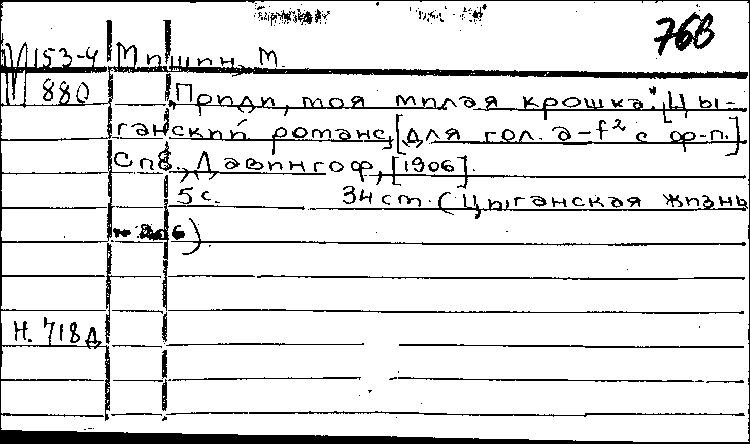 76в
М 153-4 Мишин, М.
880 „Приди, моя милая крошка". [Цы-
ганский романс, [для гол. a-f² с ф-п.]
Спб., Давингоф, [1906].
5 с. 34 см. (Цыганская жизнь
)
Н. 718 д